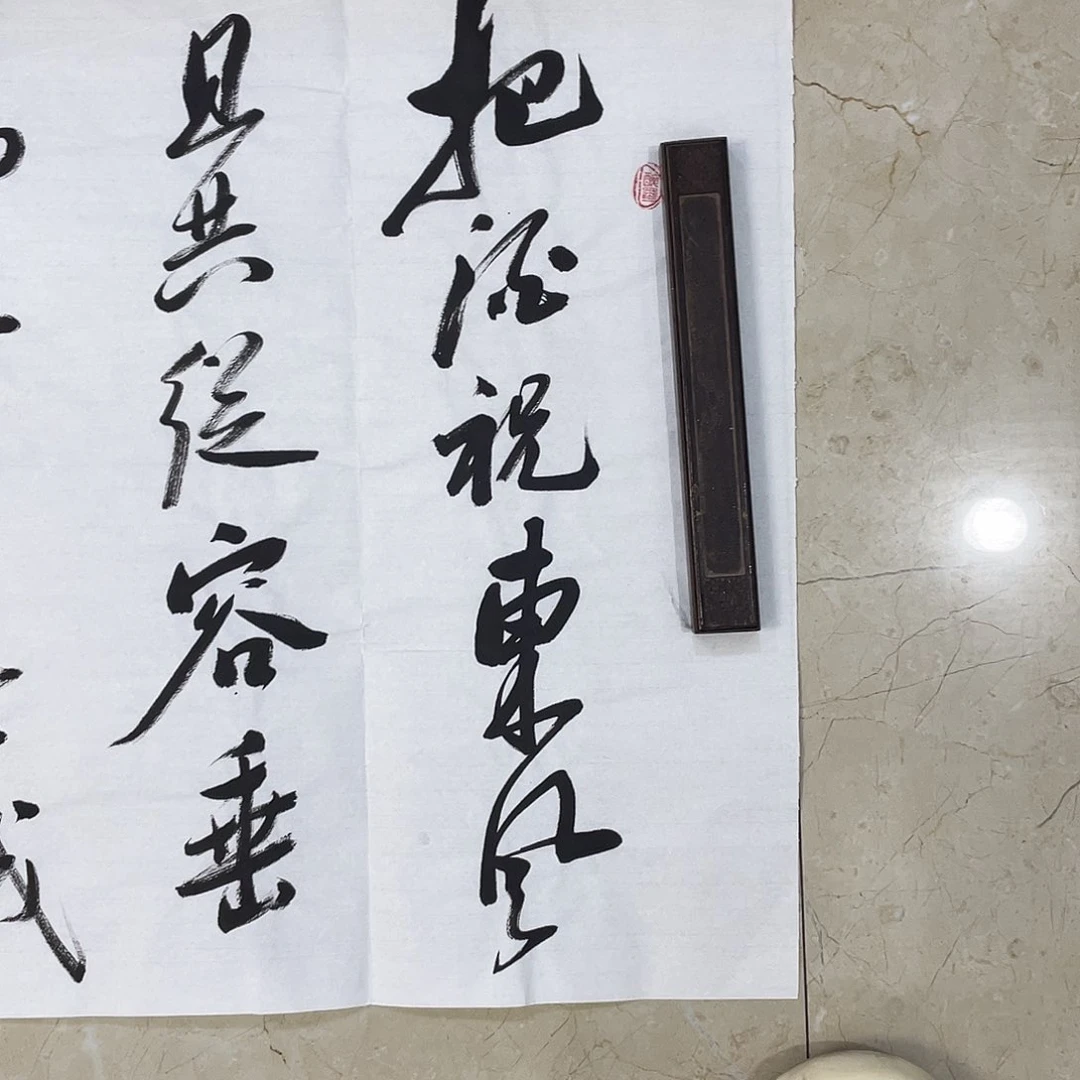 把酒祝東風
且共從容垂